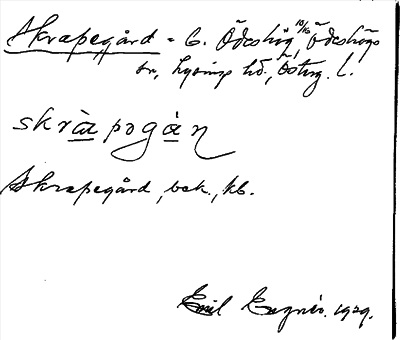 Skrapegård - G. Ödeshög 10/16 Ödeshögs
sn, Lysings hd., Österg. l.
skràpogàn
Skrapegård, bek., kb.
Emil 1929.